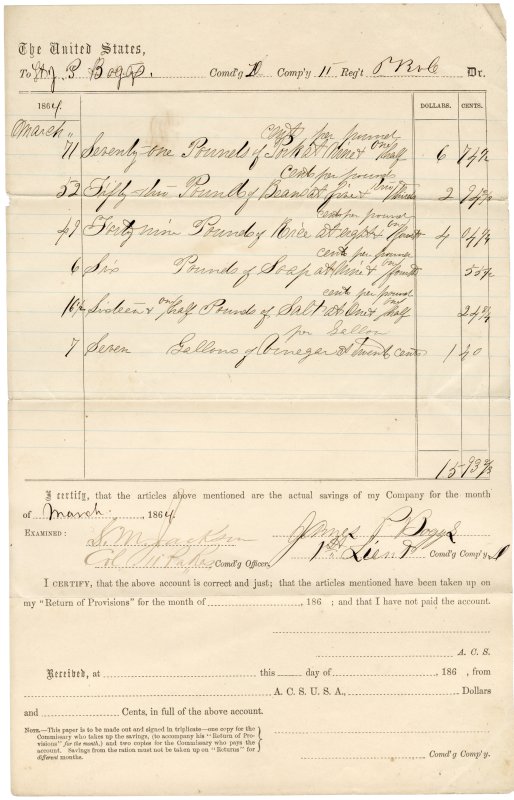 The United States,
To J. P. Boggs. Comd'g D Comp'y 11 Reg't P R V C Dr.
1864. DOLLARS. CENTS.
March "
cents per pound
71 Seventy-one Pounds of Pork at Nine & one half 6 74 1/2
cents per pound
52 Fifty-two Pounds of Beans at five & 2
cents per pound
49 Forty nine Pounds of Rice at eight & 4
cents per pound
6 Six Pounds of Soap at Nine & one fourth 55 1/2
cents per pound
16 1/2 Sixteen & one half Pounds of Salt at One & one half 24 3/4
per Gallon
7 Seven Gallons of Vinegar at Twenty cents 1 40
15 93
I certify, that the articles above mentioned are the actual savings of my Company for the month
of March, 1864.
EXAMINED: S. M. Jackson James P. Boggs
Col 11 Comd'g Officer. 1st Lieut Comd'g Comp'y D
I CERTIFY, that the above account is correct and just; that the articles mentioned have been taken up on
my "Return of Provisions" for the month of , 186 ; and that I have not paid the account.
A. C. S.
Received, at this day of 186 , from
A. C. S. U. S. A., Dollars
and Cents, in full of the above account.
NOTE.—This paper is to be made out and signed in triplicate—one copy for the
Commissary who takes up the savings, (to accompany his "Return of Pro-
visions" for the month,) and two copies for the Commissary who pays the
account. Savings from the ration must not be taken up on "Returns" for
different months.
Comd'g Comp'y.